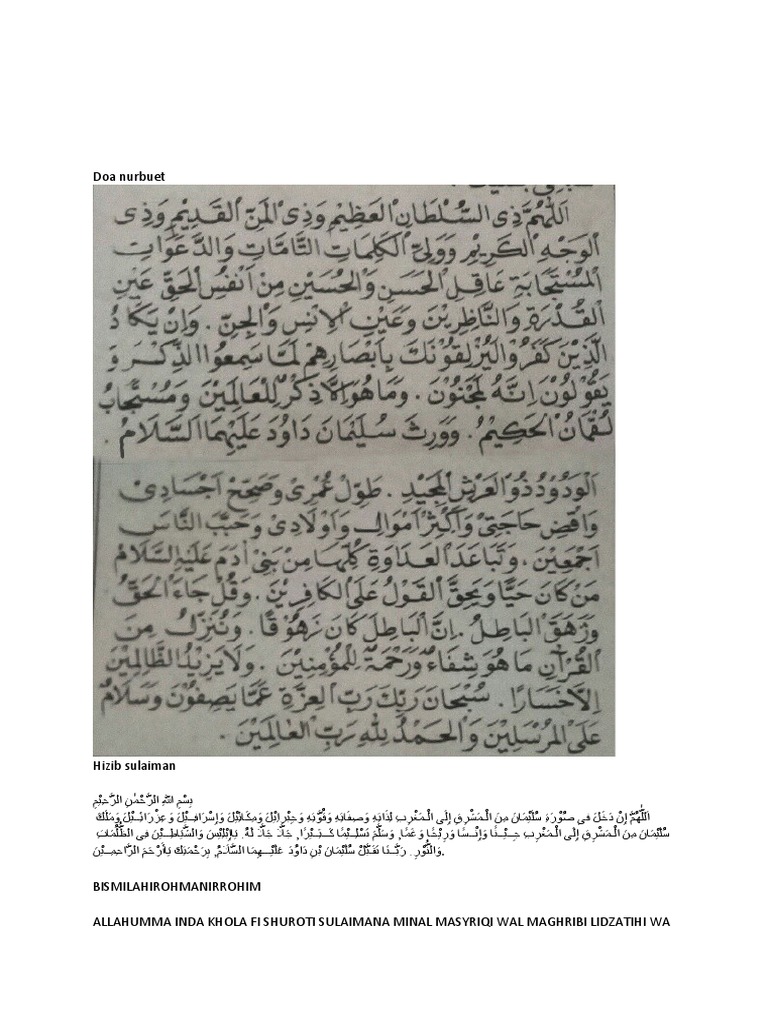 Doa nurbuet
اَللّٰهُمَّ ذِى السُّلْطَانِ الْعَظِيْمِ وَذِى الْمَنِّ الْقَدِيْمِ وَذِى
الْوَجْهِ الْكَرِيْمِ وَوَلِيِّ الْكَلِمَاتِ التَّآمَّاتِ وَالدَّعَوَاتِ
الْمُسْتَجَابَةِ عَاقِلِ الْحَسَنِ وَالْحُسَيْنِ مِنْ اَنْفُسِ الْحَقِّ عَيْنِ
الْقُدْرَةِ وَالنَّاظِرِيْنَ وَعَيْنِ الْاِنْسِ وَالْجِنِّ . وَاِنْ يَكَادُ
الَّذِيْنَ كَفَرُوْا لَيُزْلِقُوْنَكَ بِاَبْصَارِهِمْ لَمَّا سَمِعُوا الذِّكْرَ وَ
يَقُوْلُوْنَ اِنَّهُ لَمَجْنُوْنَ . وَمَا هُوَ اِلَّا ذِكْرٌ لِلْعَالَمِيْنَ وَمُسْتَجَابُ
لُقْمَانُ الْحَكِيْمُ . وَوَرِثَ سُلَيْمَانَ دَاوُدَ عَلَيْهِمَا السَّلَامُ .
اَلْوَدُوْدُ ذُو الْعَرْشِ الْمَجِيْدِ . طَوِّلْ عُمْرِىْ وَصَحِّحْ اَجْسَادِىْ
وَاقْضِ حَاجَتِىْ وَاَكْثِرْ اَمْوَالِى وَاَوْلَادِىْ وَحَبِّبْ النَّاسَ
اَجْمَعِيْنَ . وَتَبَاعَدَ الْعَدَاوَةِ كُلِّهَا مِنْ بَنِىْ اٰدَمَ عَلَيْهِ السَّلَامُ
مَنْ كَانَ حَيًّا وَيَحِقَّ الْقَوْلُ عَلَى الْكَافِرِيْنَ . وَقُلْ جَاءَ الْحَقُّ
وَزَهَقَ الْبَاطِلُ . اِنَّ الْبَاطِلَ كَانَ زَهُوْقًا . وَنُنَزِّلُ مِنَ
الْقُرْآنِ مَا هُوَ شِفَاءٌ وَرَحْمَةٌ لِلْمُؤْمِنِيْنَ . وَلَا يَزِيْدُ الظَّالِمِيْنَ
اِلَّا خَسَارًا . سُبْحَانَ رَبِّكَ رَبِّ الْعِزَّةِ عَمَّا يَصِفُوْنَ وَسَلَامٌ
عَلَى الْمُرْسَلِيْنَ وَالْحَمْدُ لِلّٰهِ رَبِّ الْعَالَمِيْنَ .
Hizib sulaiman
بِسْمِ اللّٰهِ الرَّحْمٰنِ الرَّحِيْمِ
اَللّٰهُمَّ إِنْ دَخَلَ فِى صُوْرَةِ سُلَيْمَانَ مِنَ الْمَشْرِقِ إِلَى الْمَغْرِبِ لِذَاتِهِ وَصِفَاتِهِ وَقُوَّتِهِ وَجِبْرَائِلَ وَمِكَائِلَ وَإِسْرَافِيْلَ وَعِزْرَائِيْلَ وَمَلَكَ
سُلَيْمَانَ مِنَ الْمَشْرِقِ إِلَى الْمَغْرِبِ جِنًّا وَإِنْسًا وَرِيْحًا وَسَلَّمَ تَسْلِيْمًا كَبِيْرًا, لَهُ. وَالشَّيَاطِيْنَ فِى الظُّلُمَاتِ
وَالنُّوْرِ. رَبَّنَا تَقَبَّلْ سُلَيْمَانَ بْنِ دَاوُدَ عَلَيْهِمَا السَّلَامُ, بِرَحْمَتِكَ يَاأَرْحَمَ الرَّاحِمِيْنَ.
BISMILAHIROHMANIRROHIM
ALLAHUMMA INDA KHOLA FI SHUROTI SULAIMANA MINAL MASYRIQI WAL MAGHRIBI LIDZATIHI WA